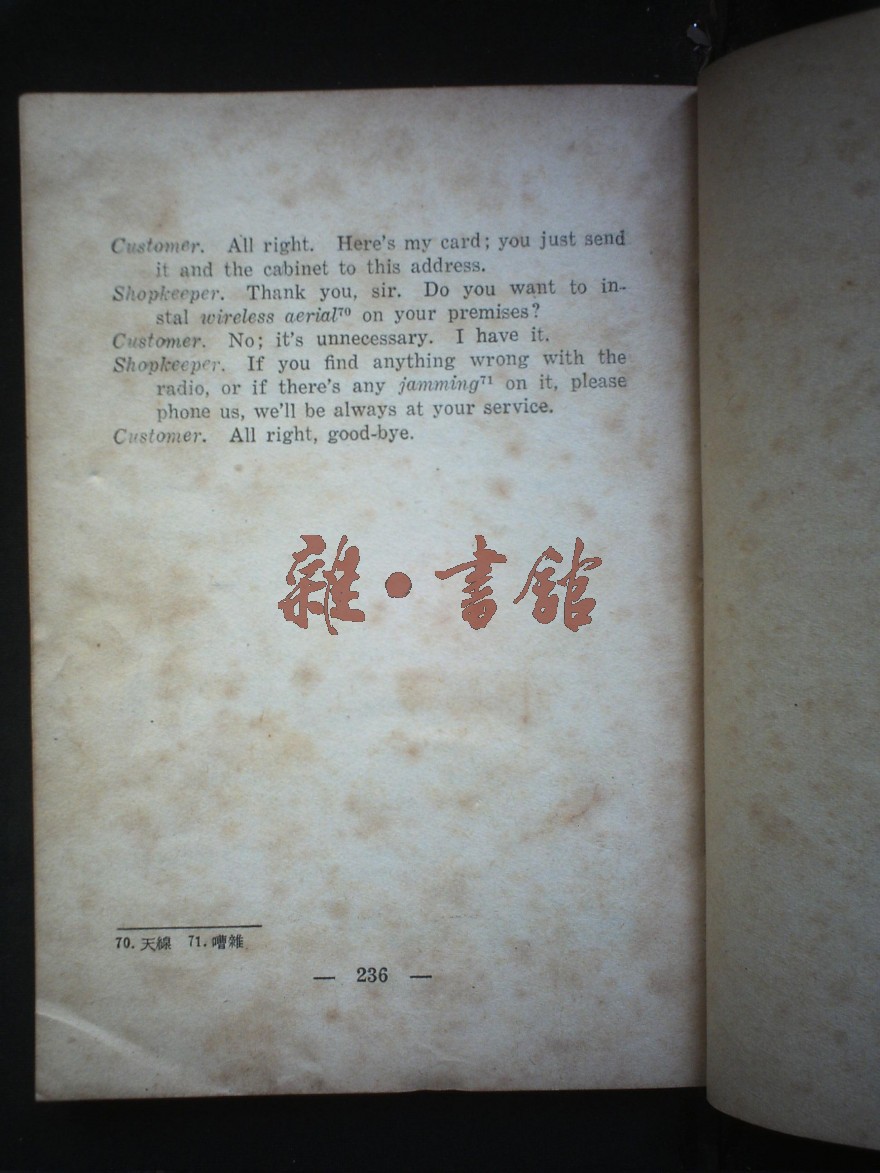 Customer. All right. Here's my card; you just send
it and the cabinet to this address.
Shopkeeper. Thank you, sir. Do you want to in-
stal wireless aerial⁷⁰ on your premises?
Customer. No; it's unnecessary. I have it.
Shopkeeper. If you find anything wrong with the
radio, or if there's any jamming⁷¹ on it, please
phone us, we'll be always at your service.
Customer. All right, good-bye.
雜•書館
70. 天線 71. 嘈雜
— 236 —